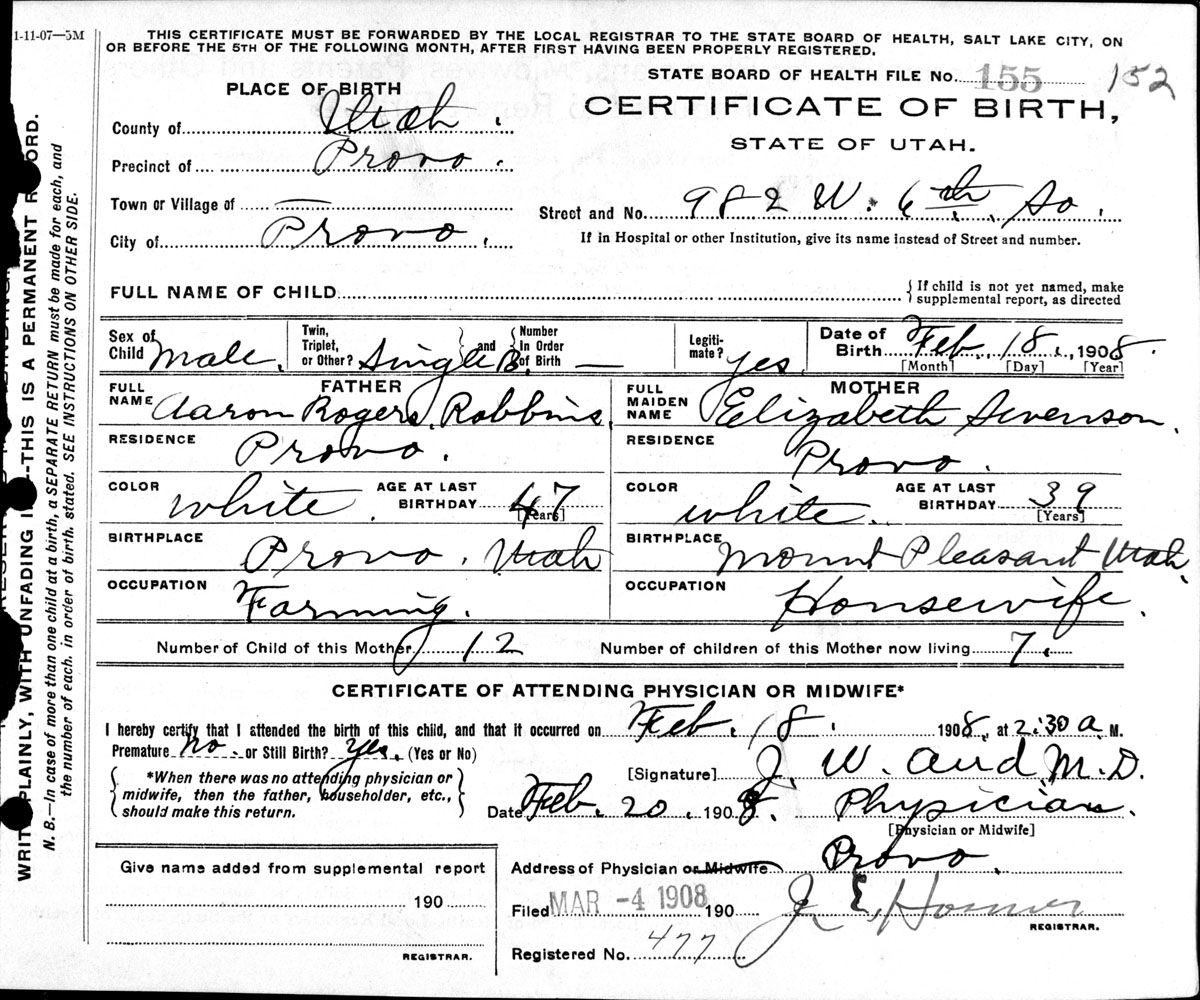 1-11-07—5M
THIS CERTIFICATE MUST BE FORWARDED BY THE LOCAL REGISTRAR TO THE STATE BOARD OF HEALTH, SALT LAKE CITY, ON
OR BEFORE THE 5TH OF THE FOLLOWING MONTH, AFTER FIRST HAVING BEEN PROPERLY REGISTERED.
STATE BOARD OF HEALTH FILE No. 155 152
PLACE OF BIRTH
CERTIFICATE OF BIRTH,
STATE OF UTAH.
County of Utah.
Precinct of Provo.
Town or Village of —
Street and No. 982 W. 6th. So.
City of Provo.
If in Hospital or other Institution, give its name instead of Street and number.
FULL NAME OF CHILD
{If child is not yet named, make
supplemental report, as directed
Sex of Child Male. Twin, Triplet, or Other? Single B. and Number In Order of Birth — Legiti-mate? yes Date of Birth Feb. 18., 1908.
[Month] [Day] [Year]
FATHER
FULL NAME Aaron Rogers Robbins.
MOTHER
FULL MAIDEN NAME Elizabeth Swenson.
RESIDENCE Provo.
RESIDENCE Provo.
COLOR white. AGE AT LAST BIRTHDAY 47 [Years]
COLOR white. AGE AT LAST BIRTHDAY 39 [Years]
BIRTHPLACE Provo. Utah
BIRTHPLACE Mount Pleasant Utah.
OCCUPATION Farming.
OCCUPATION Housewife.
Number of Child of this Mother 12 Number of children of this Mother now living 7.
CERTIFICATE OF ATTENDING PHYSICIAN OR MIDWIFE*
I hereby certify that I attended the birth of this child, and that it occurred on Feb. 18. 1908, at 2:30 a. M.
Premature no. or Still Birth? yes. (Yes or No)
{*When there was no attending physician or
midwife, then the father, householder, etc.,
should make this return.}
[Signature] J. W. Aird M.D.
Date Feb. 20. 1908. Physician.
[Physician or Midwife]
Address of Physician or Midwife Provo.
Give name added from supplemental report
190
REGISTRAR.
Filed MAR -4 1908 190 J. E. Homer
REGISTRAR.
Registered No. 477
WRITE PLAINLY, WITH UNFADING INK—THIS IS A PERMANENT RECORD.
N. B.—In case of more than one child at a birth, a SEPARATE RETURN must be made for each, and
the number of each, in order of birth, stated. SEE INSTRUCTIONS ON OTHER SIDE.